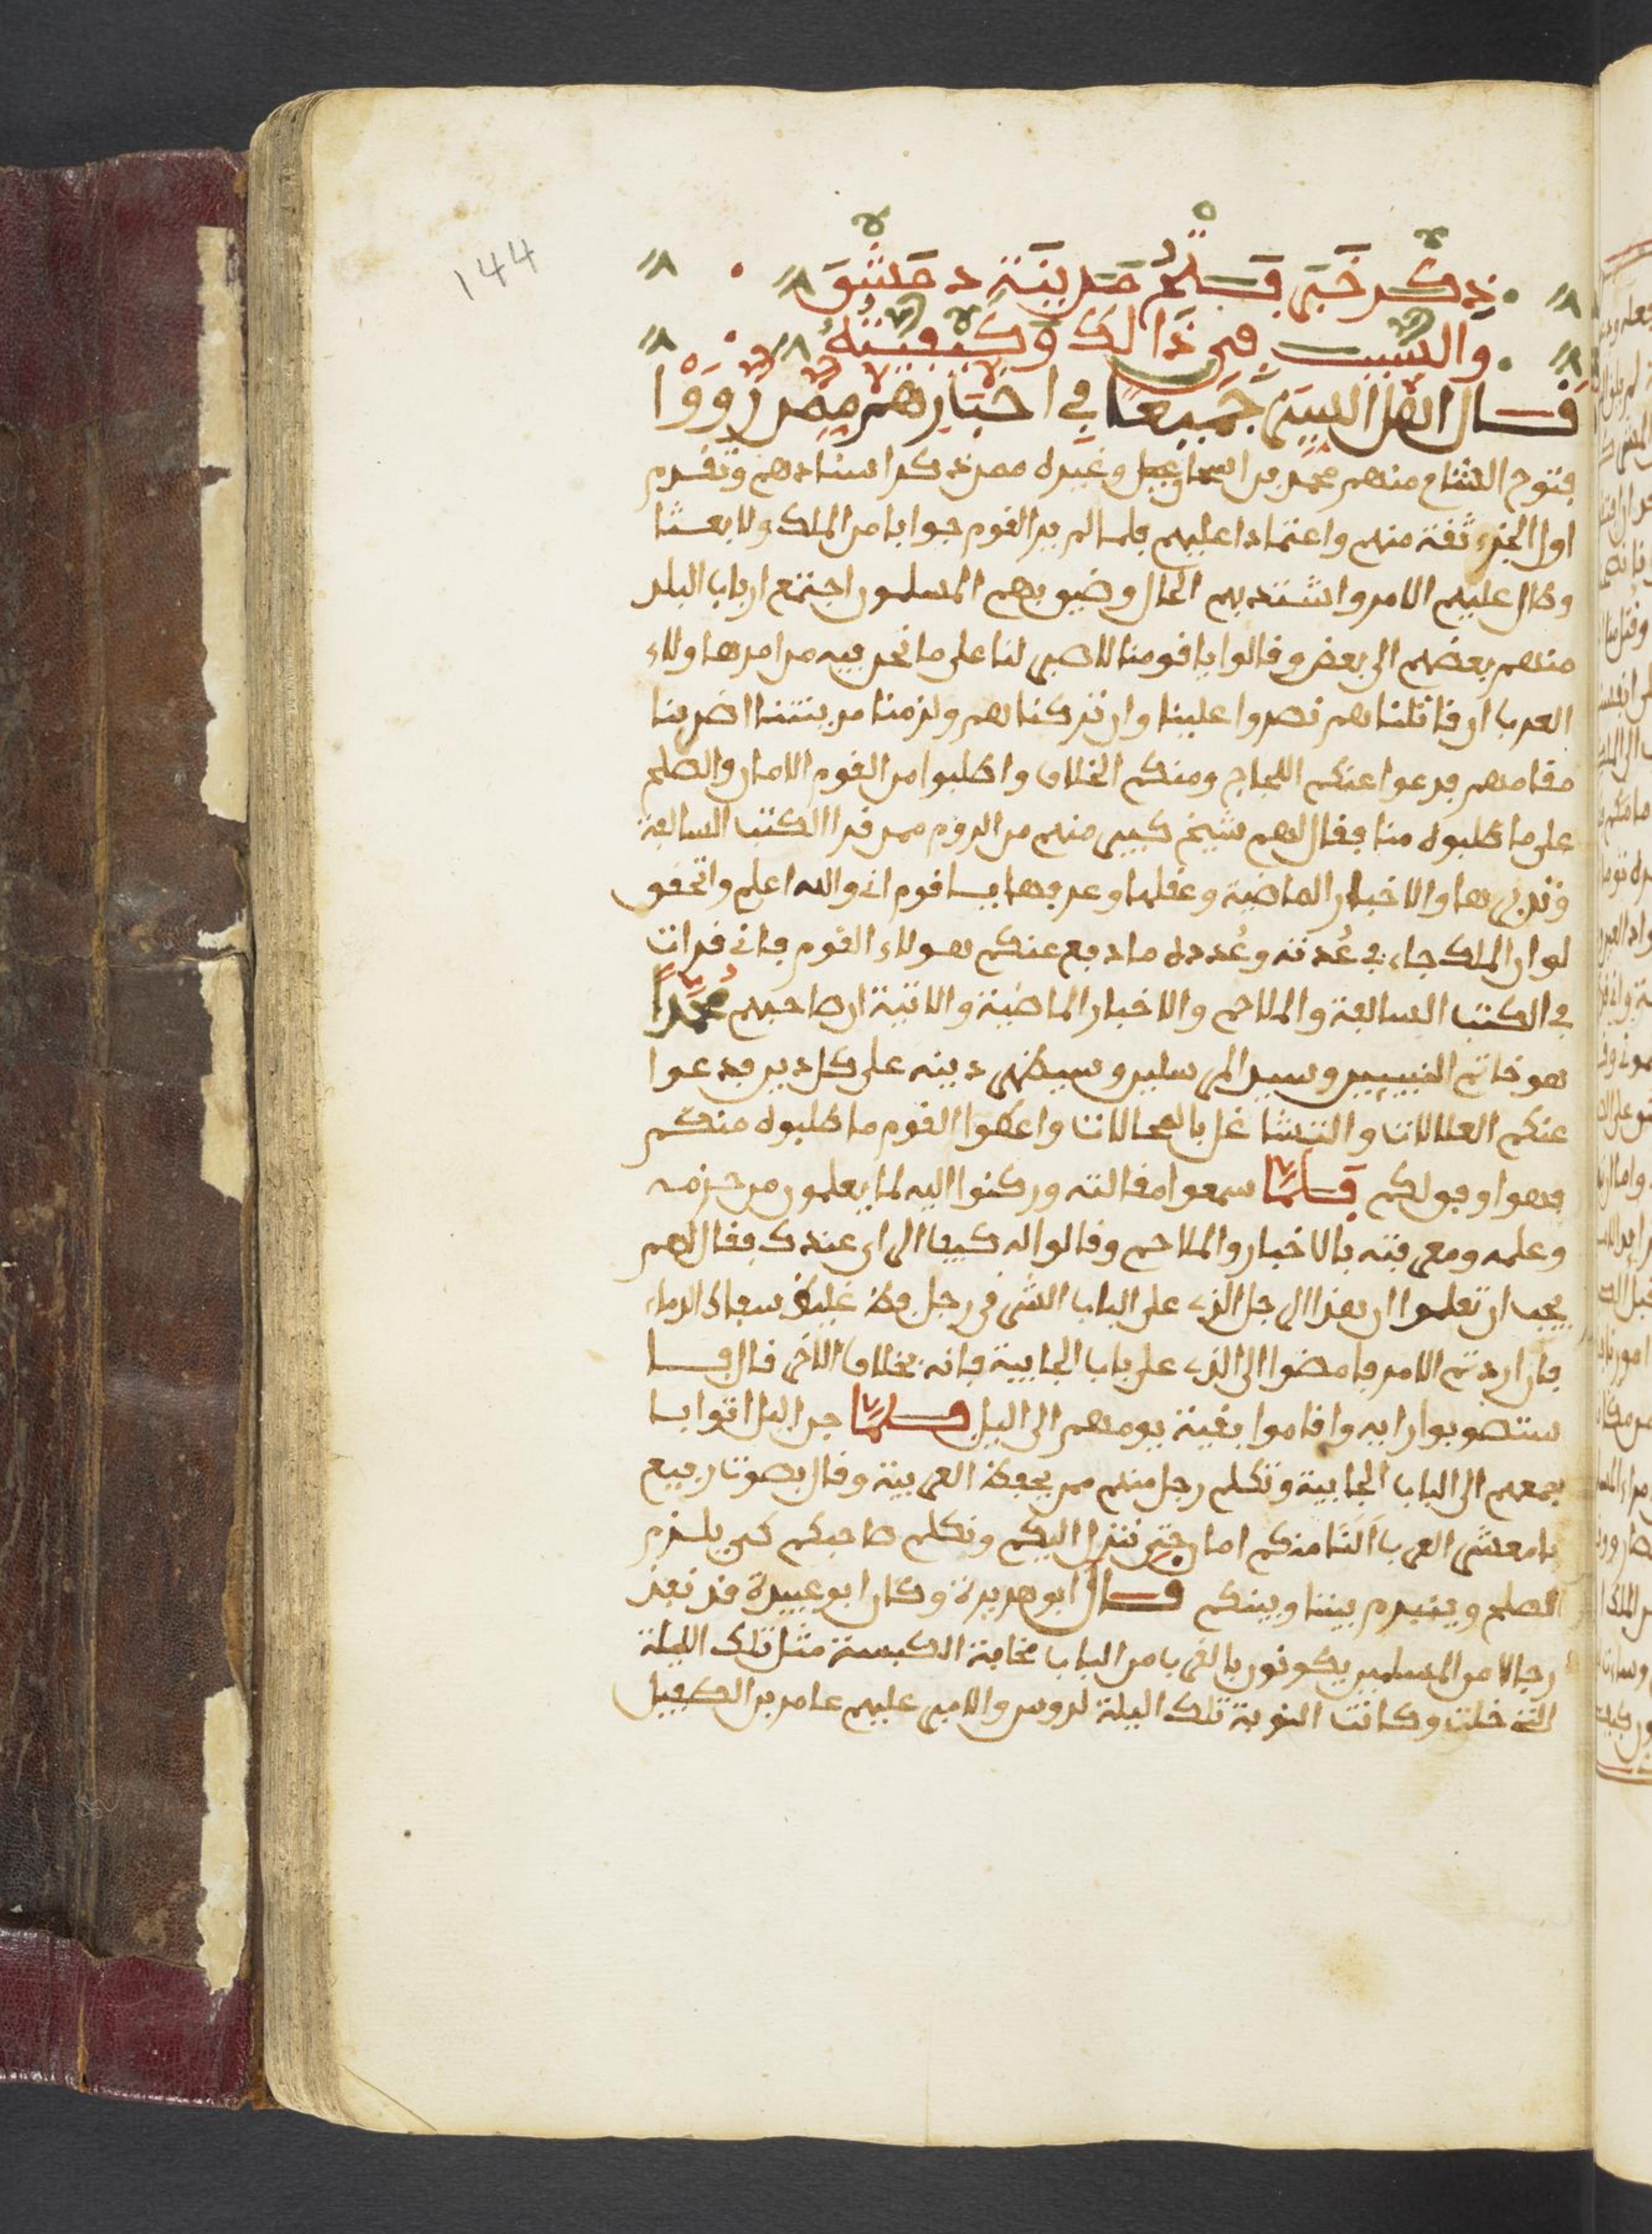 144
ذكر خبر فتح مدينة دمشق
والسبب في ذالك وكيفيته
قال اهل السير جميعا في اخبارهم ممن رووا
فتوح الشام منهم محمد بن اسحاق وغيره ممن ذكر اسنادهم وتقدم
اول الخبر ثقة منهم واعتمادا عليهم فلما لم ير القوم جوابا من الملك ولا بعثا
وطال عليهم الامر واشتد بهم الحال وضيق بهم المسلمون اجتمع ارباب البلد
منهم بعضهم الى بعض وقالوا يا قومنا لا صبر لنا على ما نحن فيه من امر هاولاء
العرب ان قاتلناهم نصروا علينا وان تركناهم ولزمنا مدينتنا اضر بنا
مقامهم فدعوا عنكم اللجاج ومنكم الخلاف واطلبوا من القوم الامان والصلح
على ما طلبوه منا فقال لهم شيخ كبير منهم من الروم ممن قرا الكتب السالفة
وتدبرها والاخبار الماضية وعقلها وعرفها يا قوم اني والله اعلم واتحقق
لو ان الملك جاء في عُدته وعُدده ما دفع عنكم هولاء القوم فاني قرات
في الكتب السالفة والملاحم والاخبار الماضية والاتية ان صاحبهم محمدًا
هو خاتم النبيين وسيد المرسلين وسيظهر دينه على كل دين فدعوا
عنكم العلالات والتشاغل بالمحالات واعطوا القوم ما طلبوه منكم
فهو اوفق لكم فلما سمعوا مقالته وركنوا اليه لما يعلمون من حزمه
وعلمه ومعرفته بالاخبار والملاحم وقالوا له كيف الراي عندك فقال لهم
يجب ان تعلموا ان هذا الرجل الذي على الباب الشرقي رجل فظ غليظ سفاك الدماء
فان اردتم الامر فامضوا الى الذي على باب الجابية فانه بخلاف الاخر قال فا
ستصوبوا رايه واقاموا بقية يومهم الى اليل فلما جن اليل اتوا با
جمعهم الى الباب الجابية وتكلم رجل منهم ممن يحفظ العربية وقال بصوت رفيع
يا معشر العرب النا منكم امان حتى ننزل اليكم ونكلم صاحبكم كي يلزم
الصلح وينبرم بيننا وبينكم قال ابو هريرة وكان ابو عبيدة قد نفذ
رجالا من المسلمين يكونون بالقرب من الباب مخافة الكبسة مثل تلك الليلة
التي خلت وكانت النوبة تلك اليلة لدوس والامير عليهم عامر بن الطفيل